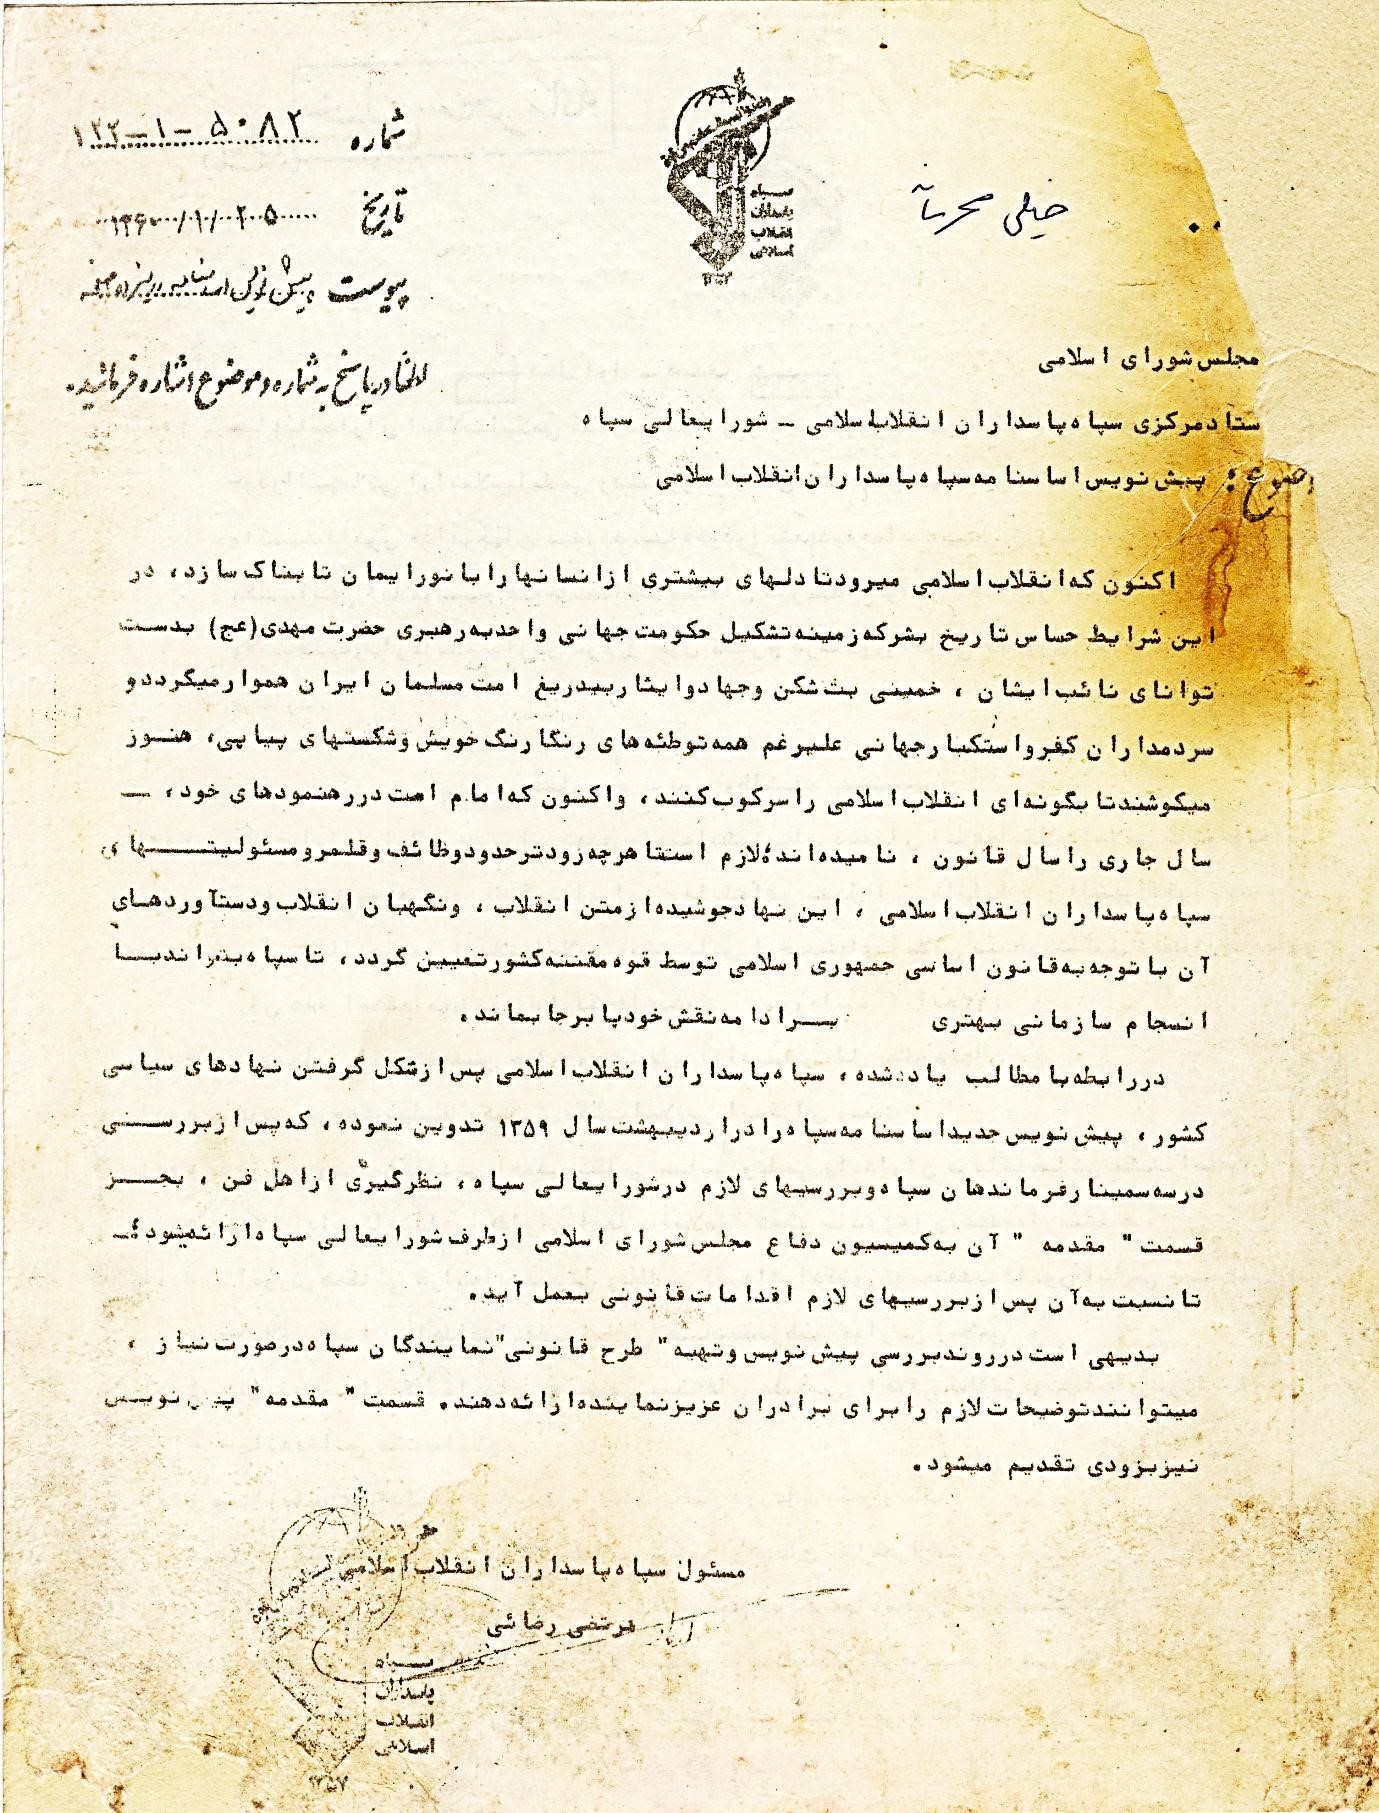 شماره ۱۲۲-۱-۵۰۸۲
تاریخ ۱۳۶۰/۱/۲۵
پیوست پیش نویس اساسنامه
لطفاً در پاسخ به شماره و موضوع اشاره فرمائید.
سپاه
پاسداران
انقلاب
اسلامی
خیلی محرمانه
مجلس شورای اسلامی
ستاد مرکزی سپاه پاسداران انقلاب اسلامی ـ شورایعالی سپاه
موضوع : پیش نویس اساسنامه سپاه پاسداران انقلاب اسلامی
اکنون که انقلاب اسلامی میرود تا دلهای بیشتری از انسانها را با نور ایمان تابناک سازد، در
این شرایط حساس تاریخ بشر که زمینه تشکیل حکومت جهانی واحد به رهبری حضرت مهدی(عج) بدست
توانای نائب ایشان ، خمینی بت شکن و جهاد و ایثار بیدریغ امت مسلمان ایران هموار میگردد و
سردمداران کفر و استکبار جهانی علیرغم همه توطئه‌های رنگارنگ خویش و شکستهای پیاپی، هنوز
میکوشند تا بگونه‌ای انقلاب اسلامی را سرکوب کنند، و اکنون که امام امت در رهنمودهای خود، ـ
سال جاری را سال قانون ، نامیده‌اند، لازم است تا هر چه زودتر حدود وظائف و قلمرو مسئولیتهای
سپاه پاسداران انقلاب اسلامی ، این نهاد جوشیده از متن انقلاب ، و نگهبان انقلاب و دستآوردهای
آن با توجه به قانون اساسی جمهوری اسلامی توسط قوه مقننه کشور تعیین گردد، تا سپاه بتواند با
انسجام سازمانی بهتری بر ادامه نقش خود پا برجا بماند.
در رابطه با مطالب یاد شده، سپاه پاسداران انقلاب اسلامی پس از شکل گرفتن نهادهای سیاسی
کشور ، پیش نویس جدید اساسنامه سپاه را در اردیبهشت سال ۱۳۵۹ تدوین نموده، که پس از بررسی
در سه سمینار فرماندهان سپاه و بررسیهای لازم در شورایعالی سپاه، نظرگیری از اهل فن ، بجز
قسمت " مقدمه " آن به کمیسیون دفاع مجلس شورای اسلامی از طرف شورایعالی سپاه ارائه میشود؛ـ
تا نسبت به آن پس از بررسیهای لازم اقدامات قانونی بعمل آید.
بدیهی است در روند بررسی پیش نویس و تهیه " طرح قانونی" نمایندگان سپاه در صورت نیاز ،
میتوانند توضیحات لازم را برای برادران عزیز نماینده ارائه دهند. قسمت " مقدمه " پیش نویس
نیز بزودی تقدیم میشود.
مسئول سپاه پاسداران انقلاب اسلامی
مرتضی رضائی
سپاه
پاسداران
انقلاب
اسلامی
۱۳۵۷